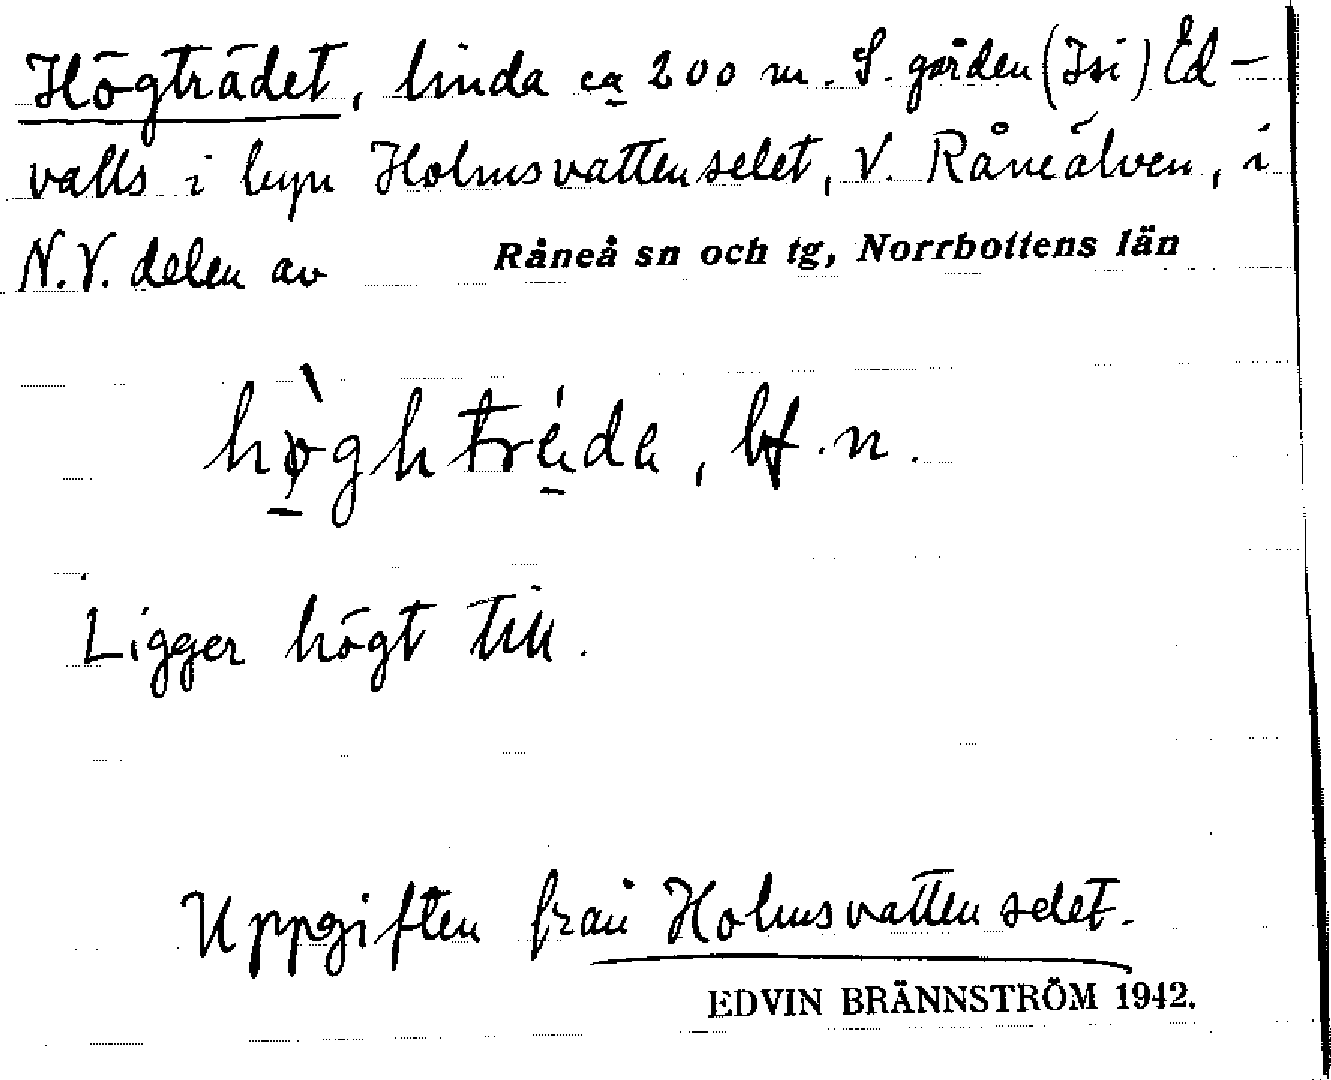 Högträdet, linda ca 200 m. S. gården (Isi) Ed-
valls i byn Holmsvattenselet, V. Råneälven, i
N.V. delen av Råneå sn och tg, Norrbottens län
bf. n.
Ligger högt till.
Uppgiften från Holmsvattenselet.
EDVIN BRÄNNSTRÖM 1942.